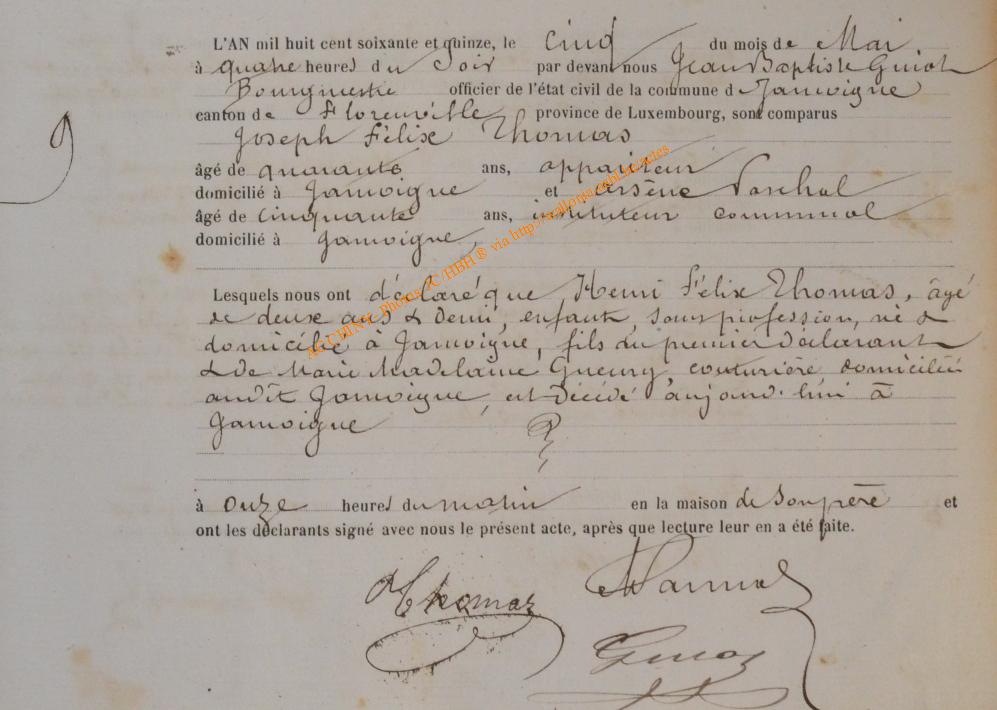 L'AN mil huit cent soixante et quinze, le cinq du mois de Mai
à quatre heures du Soir par devant nous Jean Baptiste Guiot
Bourgmestre officier de l'état civil de la commune de Jamoigne
canton de Florenville province de Luxembourg, sont comparus
Joseph Félix Thomas
âgé de quarante ans, appariteur
domicilié à Jamoigne et Arsène Paschal
âgé de cinquante ans, instituteur communal
domicilié à Jamoigne,
Lesquels nous ont déclaré que Henri Félix Thomas, âgé
de deux ans & demi, enfant, sans profession, né &
domicilié à Jamoigne, fils du premier déclarant
& de Marie Madelaine Gueury, couturière domiciliée
audit Jamoigne, est décédé aujourd'hui à
Jamoigne
à onze heures du matin en la maison de son père et
ont les déclarants signé avec nous le présent acte, après que lecture leur en a été faite.
Thomas
Guiot
9